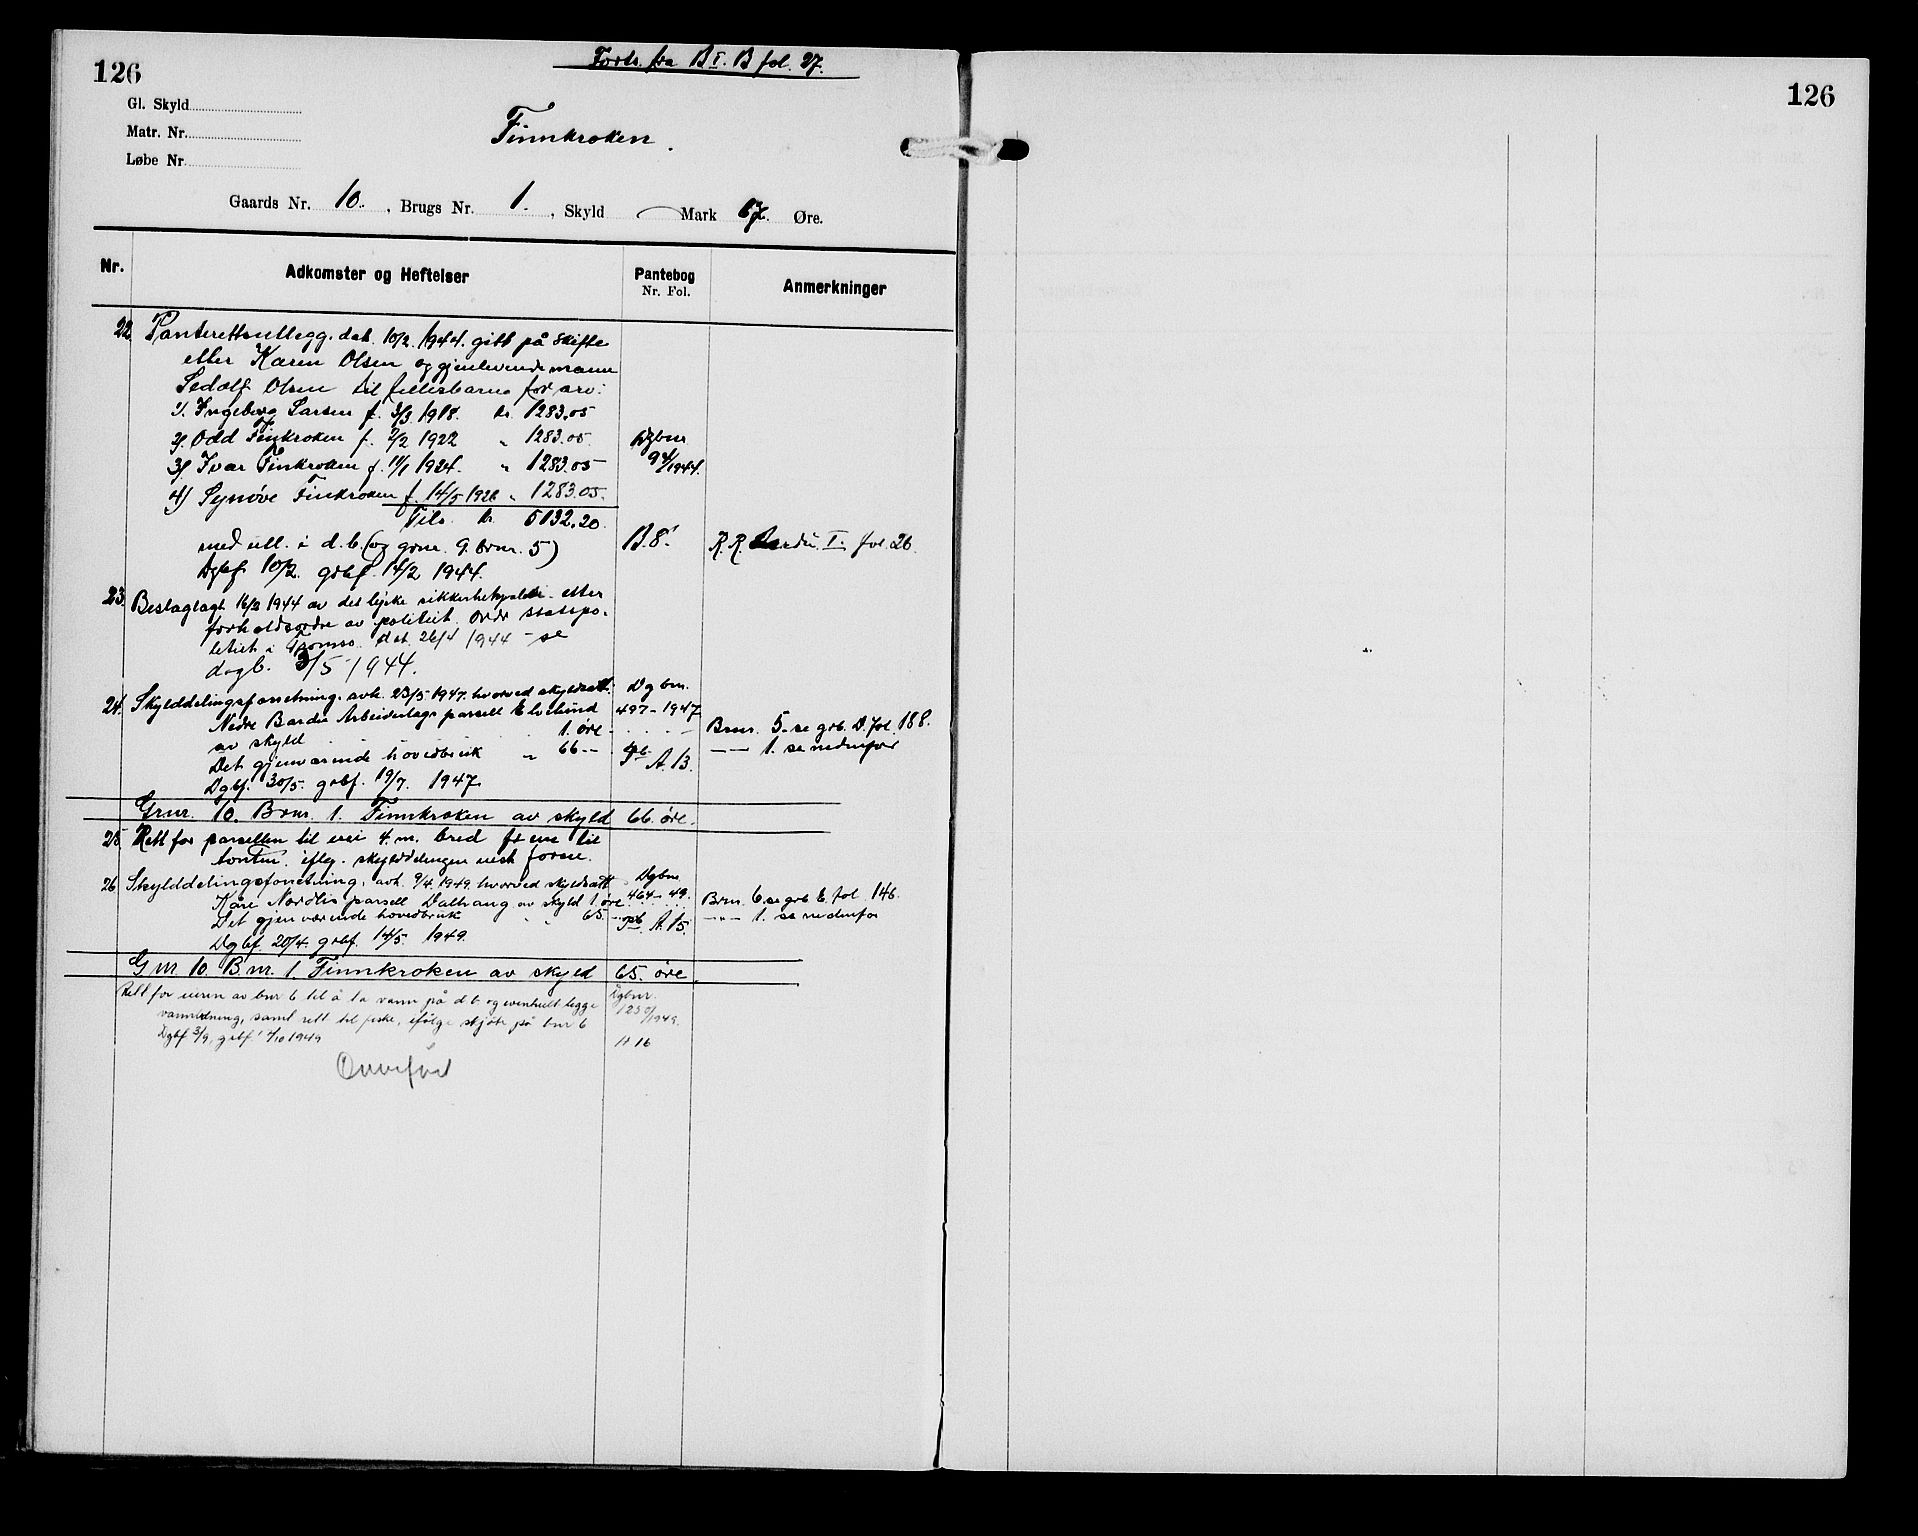 126
Forts. fra B I. B fol. 27.
126
Gl. Skyld
Matr. Nr.
Løbe Nr.
Finnkroken.
Gaards Nr. 10., Brugs Nr. 1., Skyld Mark 67. Øre.
Nr. Adkomster og Heftelser Pantebog Nr. Fol. Anmerkninger
22. Panterettsutlegg. dat. 10/2. 1944. gitt på skifte
etter Karen Olsen og gjenlevende mann
Sedolf Olsen til fellesbarna for arv:
1). Ingeborg Larsen f. 3/3 1918. kr. 1283.05
2). Odd Finkroken f. 2/2 1922 " 1283.05. Dgbnr.
3). Ivar Finkroken f. 11/1 1924. " 1283.05 94/1944.
4) Synøve Finkroken f. 14/5 1926 " 1283.05.
Tils. kr. 5132.20
med utl. i d. b. (og gnr. 9. bnr. 5) B. 8. R. R. Bardu. I. fol. 26.
Dgbf. 10/2. grbf. 14/2 1944.
23. Beslaglagt 16/2 1944 av det tyske sikkerhetspoliti etter
forholdsordre av politiet. Ordr statspo-
litiet i Tromsø dat. 26/4 1944 - se
dagb. 3/5 1944.
24. Skylddelingsforretning. avh. 23/5 1947. hvorved skyldsatt: Dgbnr.
Nedre Bardu Arbeiderlags parsell Elvelund 497-1947
av skyld 1. øre. Bnr. 5. se grb. D. fol. 188.
Det gjenværende hovedbruk " 66 -- Pb. A. 13. -- 1. se nedenfor
Dgbf. 30/5. grbf. 19/7. 1947.
Grnr. 10. Brnr. 1. Finnkroken av skyld 66. øre.
25. Rett for parsellen til vei 4. m. bred frem til
tomten. iflg. skylddelingen nest foran.
26. Skylddelingsforretning. avh. 9/4. 1949. hvorved skyldsatt Dgbnr.
Kåre Nordlis parsell Dalhaug av skyld 1 øre 464-49. Brnr. 6 se grb E. fol. 146.
Det gjenværende hovedbruk " 65. -- Pb. A. 15. --- 1. se nedenfor
Dgbf. 20/4. grbf. 14/5. 1949.
Gnr. 10. Bnr. 1. Finnkroken av skyld 65. øre.
Rett for eieren av bnr 6 til å ta vann på d b og eventuelt legge Dgbnr.
vannledning, samt rett til fiske, ifølge skjøte på bnr 6 1250/1949.
Dgbf 3/9, grbf 1/10 1949 A 16
Overført